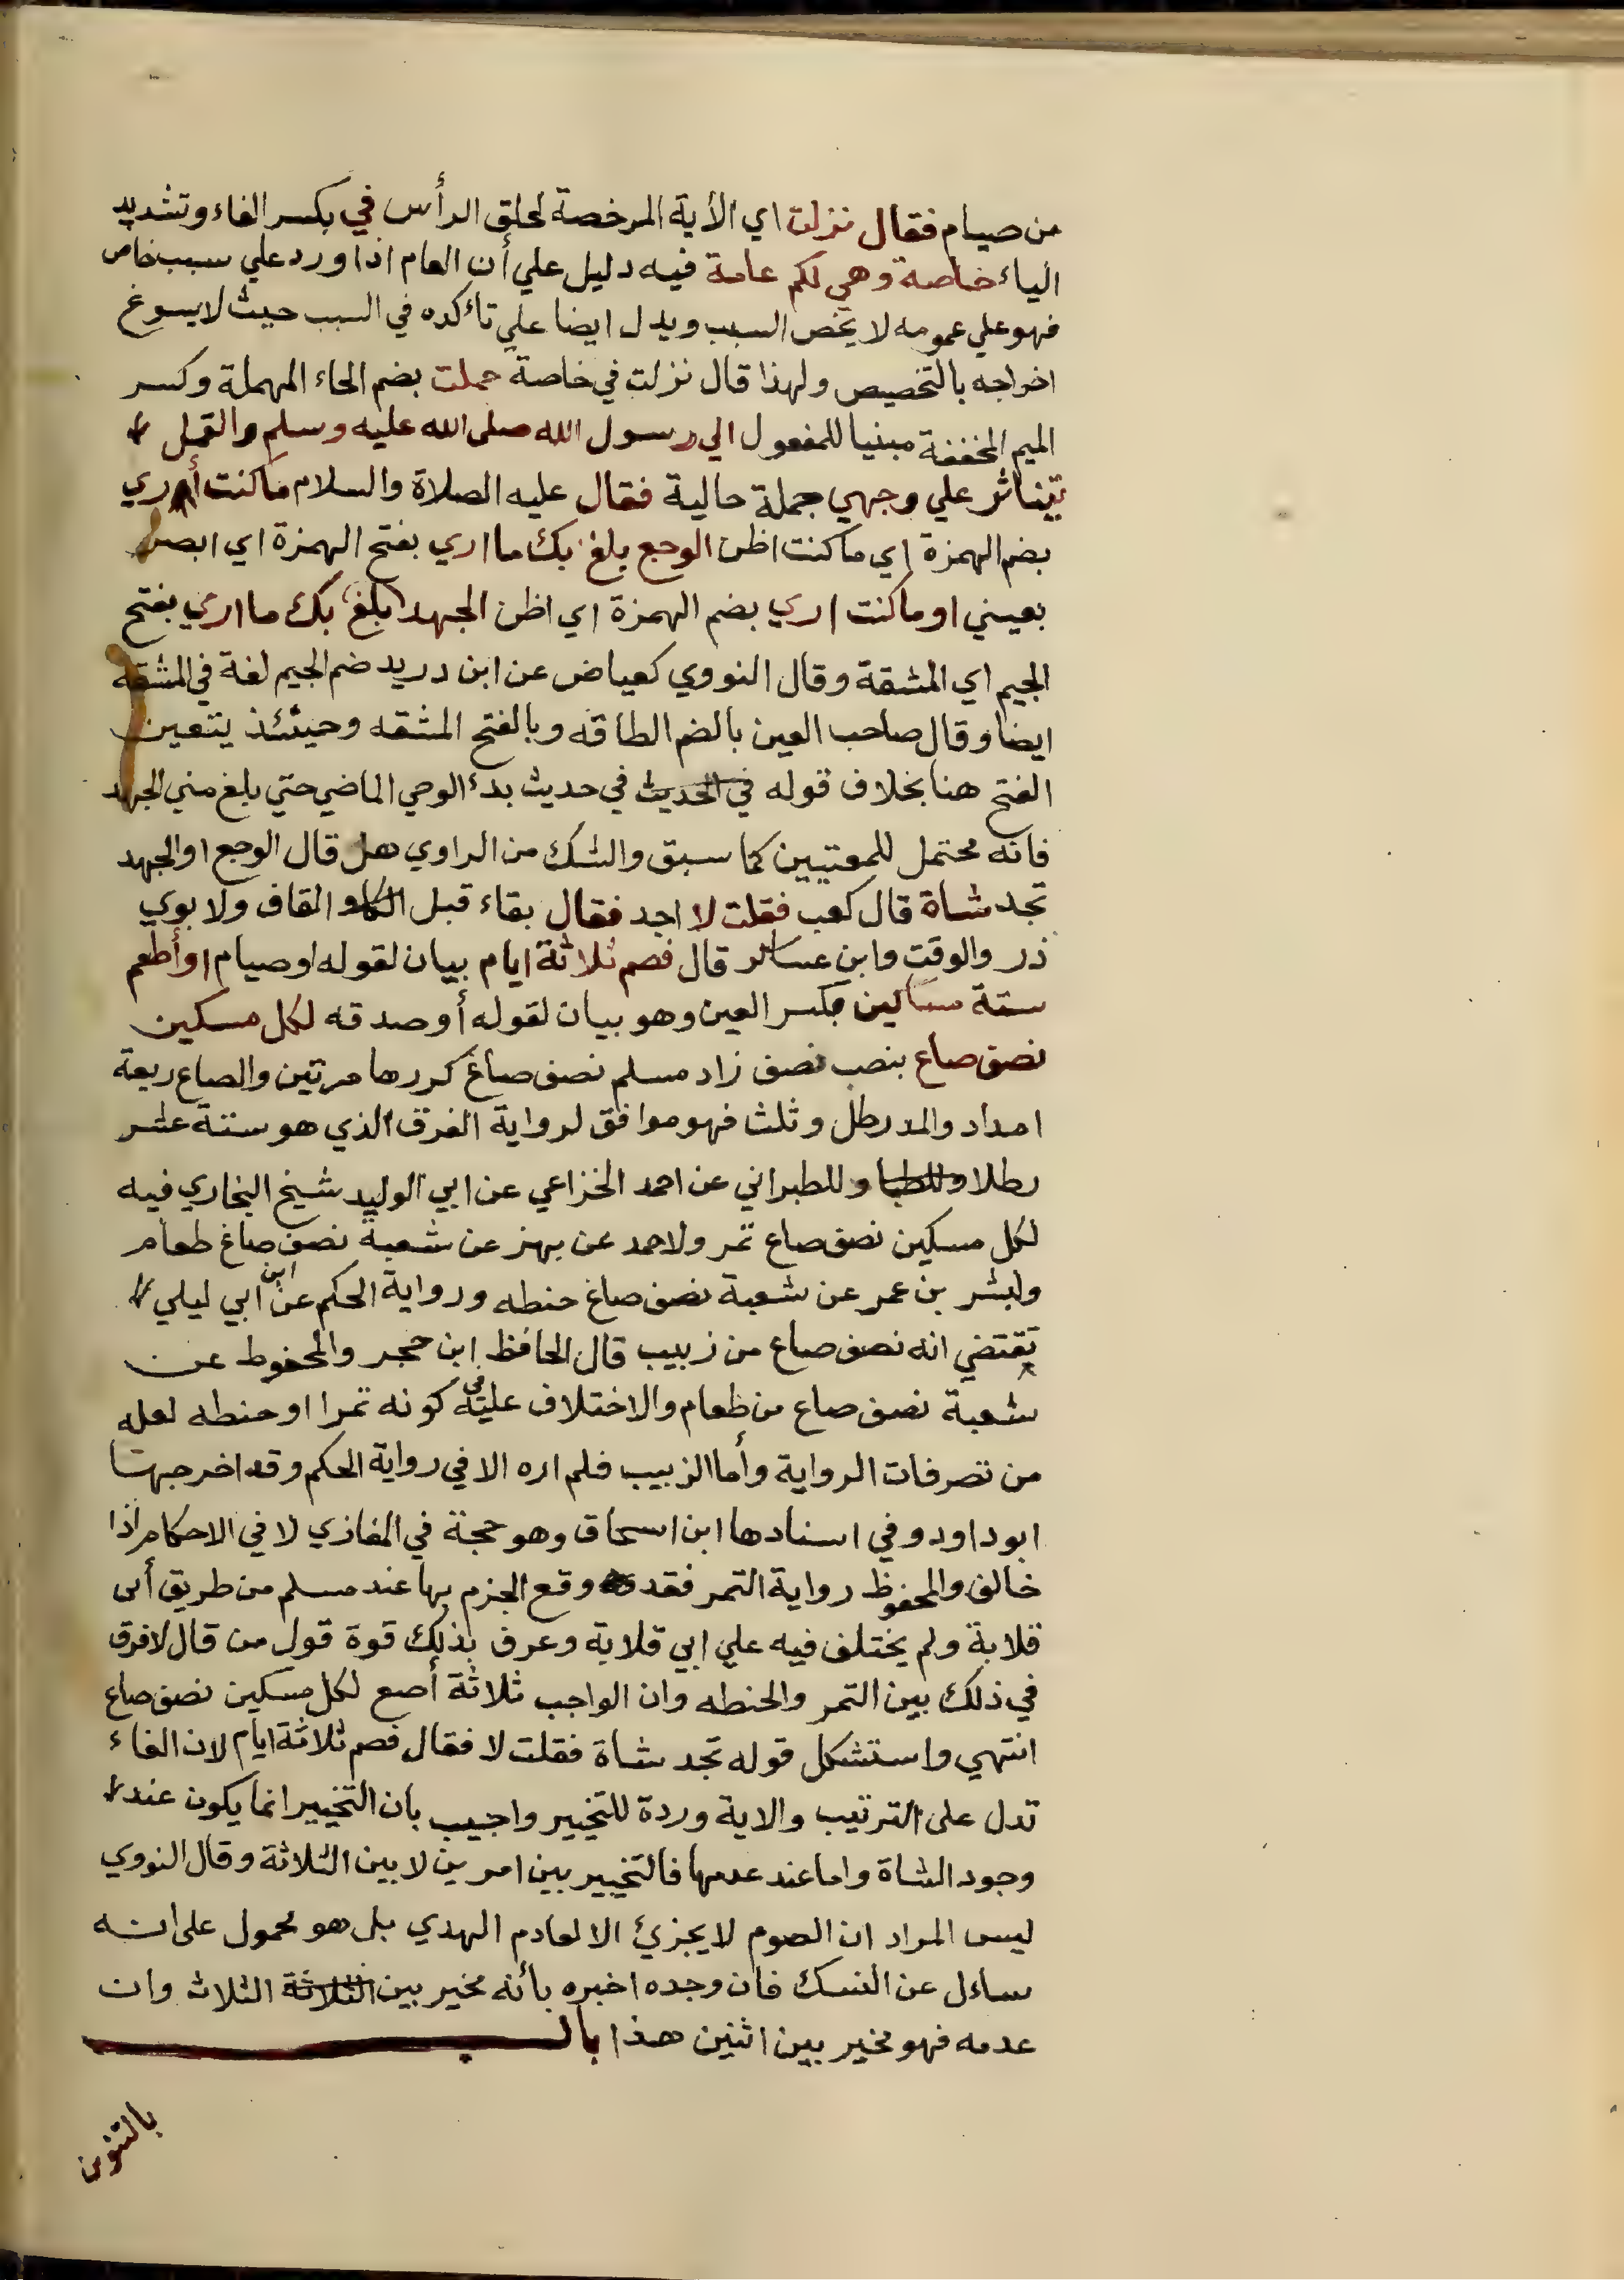 من صيام فقال نزلت اي الأية المرخصة لحلق الرأس في بكسر الفاء وتشديد
الياء خاصة وهي لكم عامة فيه دليل علي أن العام اذا ورد علي سبب خاص
فهو علي عمومه لا يخص السبب ويدل ايضا علي تأكده في السبب حيث لا يسوغ
اخراجه بالتخصيص ولهذا قال نزلت في خاصة حملت بضم الحاء المهملة وكسر
الميم المخففة مبنيا للمفعول الي رسول الله صلى الله عليه وسلم والقمل
يتناثر علي وجهي جملة حالية فقال عليه الصلاة والسلام ما كنت أري
بضم الهمزة اي ما كنت اظن الوجع بلغ بك ما اري بفتح الهمزة اي ابصر
بعيني او ما كنت اري بضم الهمزة اي اظن الجهد بلغ بك ما اري بفتح
الجيم اي المشقة وقال النووي كعياض عن ابن دريد ضم الجيم لغة في المشقة
ايضا وقال صاحب العين بالضم الطاقه وبالفتح المشقه وحينئذ يتعين
الفتح هنا بخلاف قوله في الحديث في حديث بدء الوحي الماضي حتي بلغ مني الجهد
فانه محتمل للمعنيين كما سبق والشك من الراوي هل قال الوجع او الجهد
تجد شاة قال كعب فقلت لا اجد فقال بفاء قبل القاف ولابوي
ذر والوقت وابن عساكر قال فصم ثلاثة ايام بيان لقوله او صيام او أطعم
ستة مساكين بكسر العين وهو بيان لقوله أو صدقه لكل مسكين
نصف صاع بنصب نصف زاد مسلم نصف صاع كررها مرتين والصاع ربعة
امداد والمد رطل وثلث فهو موافق لرواية الفرق الذي هو ستة عشر
رطلا وللطبا وللطبراني عن احمد الخزاعي عن ابي الوليد شيخ البخاري فيه
لكل مسكين نصف صاع تمر ولاحمد عن بهز عن شعبة نصف صاع طعام
ولبشر بن عمر عن شعبة نصف صاع حنطه ورواية الحكم عن ابن ابي ليلي
تقتضي انه نصف صاع من زبيب قال الحافظ ابن حجر والمحفوظ عن
شعبة نصف صاع من طعام والاختلاف عليه في كونه تمرا او حنطه لعله
من تصرفات الرواية وأما الزبيب فلم اره الا في رواية الحكم وقد اخرجها
ابو داود وفي اسنادها ابن اسحاق وهو حجة في المغازي لا في الاحكام اذا
خالف والمحفوظ رواية التمر فقد وقع الجزم بها عند مسلم من طريق أبى
قلابة ولم يختلف فيه علي ابي قلابة وعرف بذلك قوة قول من قال لا فرق
في ذلك بين التمر والحنطه وان الواجب ثلاثة أصع لكل مسكين نصف صاع
انتهي واستشكل قوله تجد شاة فقلت لا فقال فصم ثلاثة ايام لان الفاء
تدل على الترتيب والاية وردة للتخيير واجيب بان التخيير انما يكون عند
وجود الشاة واما عند عدمها فالتخيير بين امرين لا بين الثلاثة وقال النووي
ليس المراد ان الصوم لا يجزئ الا لعادم الهدي بل هو محمول على انه
ساءل عن النسك فان وجده اخبره بأنه مخير بين الثلاثة الثلاث وان
عدمه فهو مخير بين اثنين هذا باب
بالتنوين